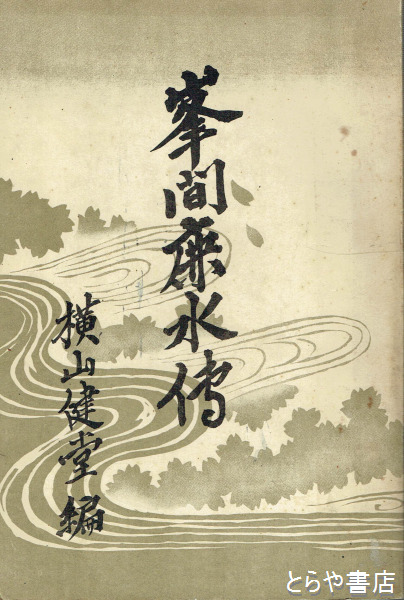 峯間鹿水傳
横山健堂編
とらや書店